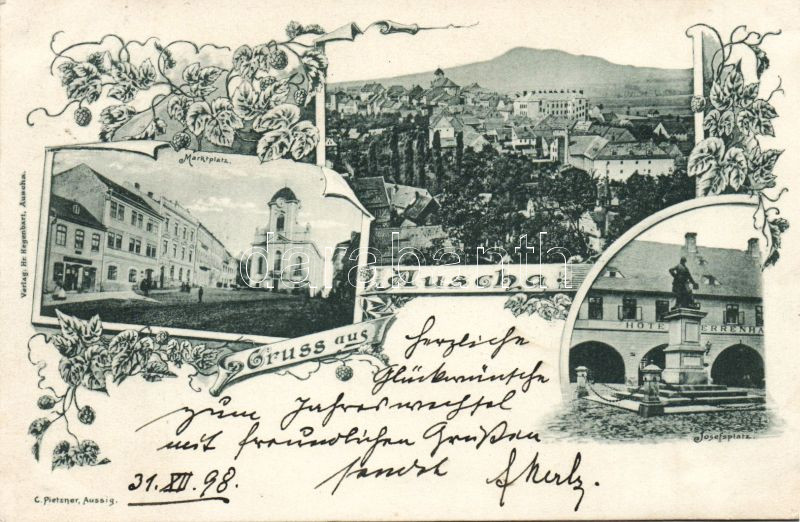 Marktplatz.
Verlag: Hr. Hegenbart, Auscha.
darabanth
Gruss aus
Auscha.
HOTE
ERRENHA
Josefsplatz.
herzliche
Glückwünsche
zum Jahreswechsel
mit freundlichen Grüßen
sendet
31. XII. 98.
C. Pietzner, Aussig.